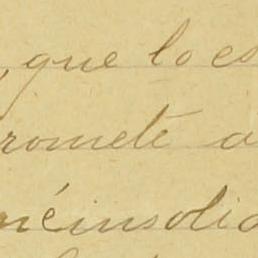 , que lo es
romete a
néinsolid